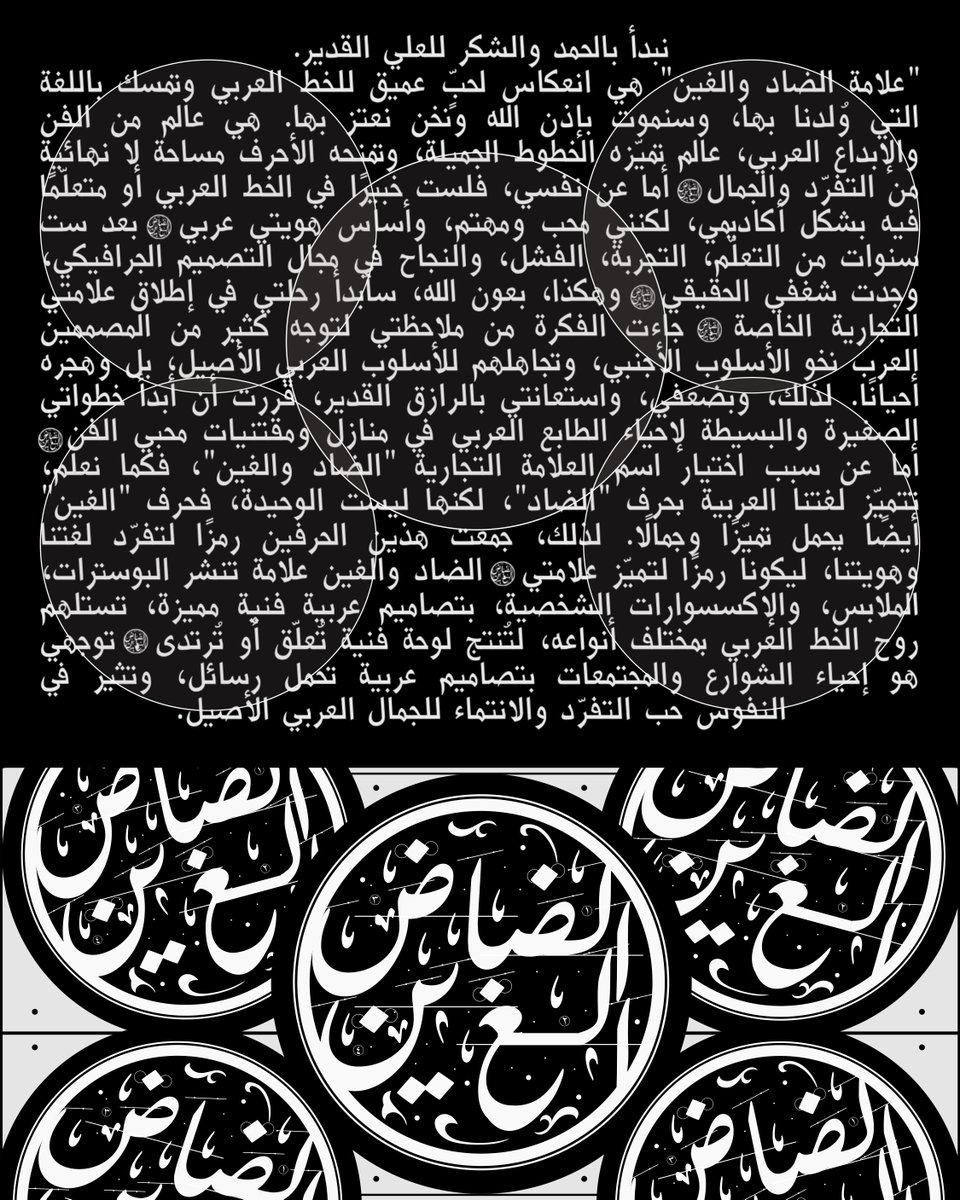 نبدأ بالحمد والشكر للعلي القدير.
"علامة الضاد والغين" هي انعكاس لحبّ عميق للخط العربي وتمسك باللغة
التي وُلدنا بها، وسنموت بإذن الله ونحن نعتز بها. هي عالم من الفن
والإبداع العربي، عالم تميّزه الخطوط الجميلة، وتمنحه الأحرف مساحة لا نهائية
من التفرّد والجمال أما عن نفسي، فلست خبيرًا في الخط العربي أو متعلّمًا
فيه بشكل أكاديمي، لكنني محب ومهتم، وأساس هويتي عربي بعد ست
سنوات من التعلّم، التجربة، الفشل، والنجاح في مجال التصميم الجرافيكي،
وجدت شغفي الحقيقي وهكذا، بعون الله، سأبدأ رحلتي في إطلاق علامتي
التجارية الخاصة جاءت الفكرة من ملاحظتي لتوجه كثير من المصممين
العرب نحو الأسلوب الأجنبي، وتجاهلهم للأسلوب العربي الأصيل، بل وهجره
أحيانًا. لذلك، وبضعفي، واستعانتي بالرازق القدير، قررت أن أبدأ خطواتي
الصغيرة والبسيطة لإحياء الطابع العربي في منازل ومقتنيات محبي الفن
أما عن سبب اختيار اسم العلامة التجارية "الضاد والغين"، فكما نعلم،
تتميّز لغتنا العربية بحرف "الضاد"، لكنها ليست الوحيدة، فحرف "الغين"
أيضًا يحمل تميّزًا وجمالًا. لذلك، جمعت هذين الحرفين رمزًا لتفرّد لغتنا
وهويتنا، ليكونا رمزًا لتميّز علامتي الضاد والغين علامة تنشر البوسترات،
الملابس، والإكسسوارات الشخصية، بتصاميم عربية فنية مميزة، تستلهم
روح الخط العربي بمختلف أنواعه، لتُنتج لوحة فنية تُعلّق أو تُرتدى توجهي
هو إحياء الشوارع والمجتمعات بتصاميم عربية تحمل رسائل، وتثير في
النفوس حب التفرّد والانتماء للجمال العربي الأصيل.
الضاض
الغين
الضاض
الغين
الضاض
الغين
الضاض
الضاض